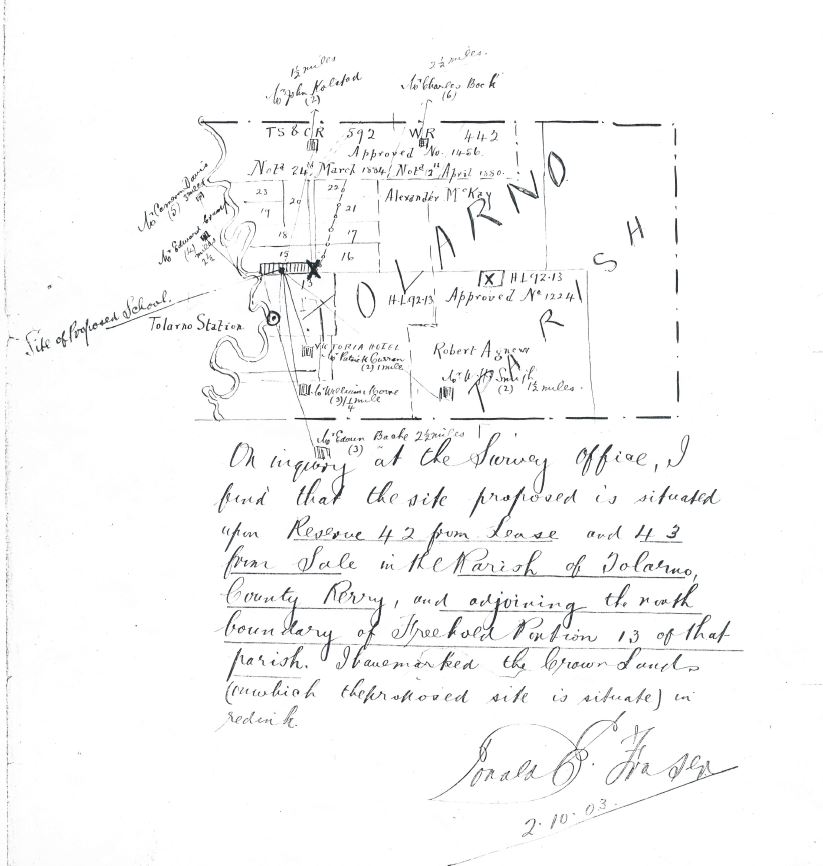 1½ miles
2½ miles.
Mr John Kolstad
(2)
Mr Charles Bock
(6)
TS & CR 592 WR 442
Approved No. 1486.
Notd 24th March 1884 Notd 12th April 1880.
Mr Cameron Davis
(5) 3 miles
23
22
Alexander McKay
20
21
19
Mr Edward
(4) miles
2½
18
17
15
16
TOLARNO
PARISH
13
X HL92.13
HL92.13 Approved No 1224
Site of Proposed School.
Tolarno Station
VICTORIA HOTEL
Mr Patrick Curran
(2) 1 mile
Robert Agnew
Mr Smith
(2) 1½ miles.
Mr William Moore
(3) ¼ mile
Mr Edwin Bache 2½ miles
(3)
On inquiry at the Survey Office, I
find that the site proposed is situated
upon Reserve 42 from Lease and 43
from Sale in the Parish of Tolarno,
County Perry, and adjoining the north
boundary of Freehold Portion 13 of that
parish. I have marked the Crown Lands
(on which the proposed site is situate) in
red ink.
Donald C. Fraser
2.10.03.